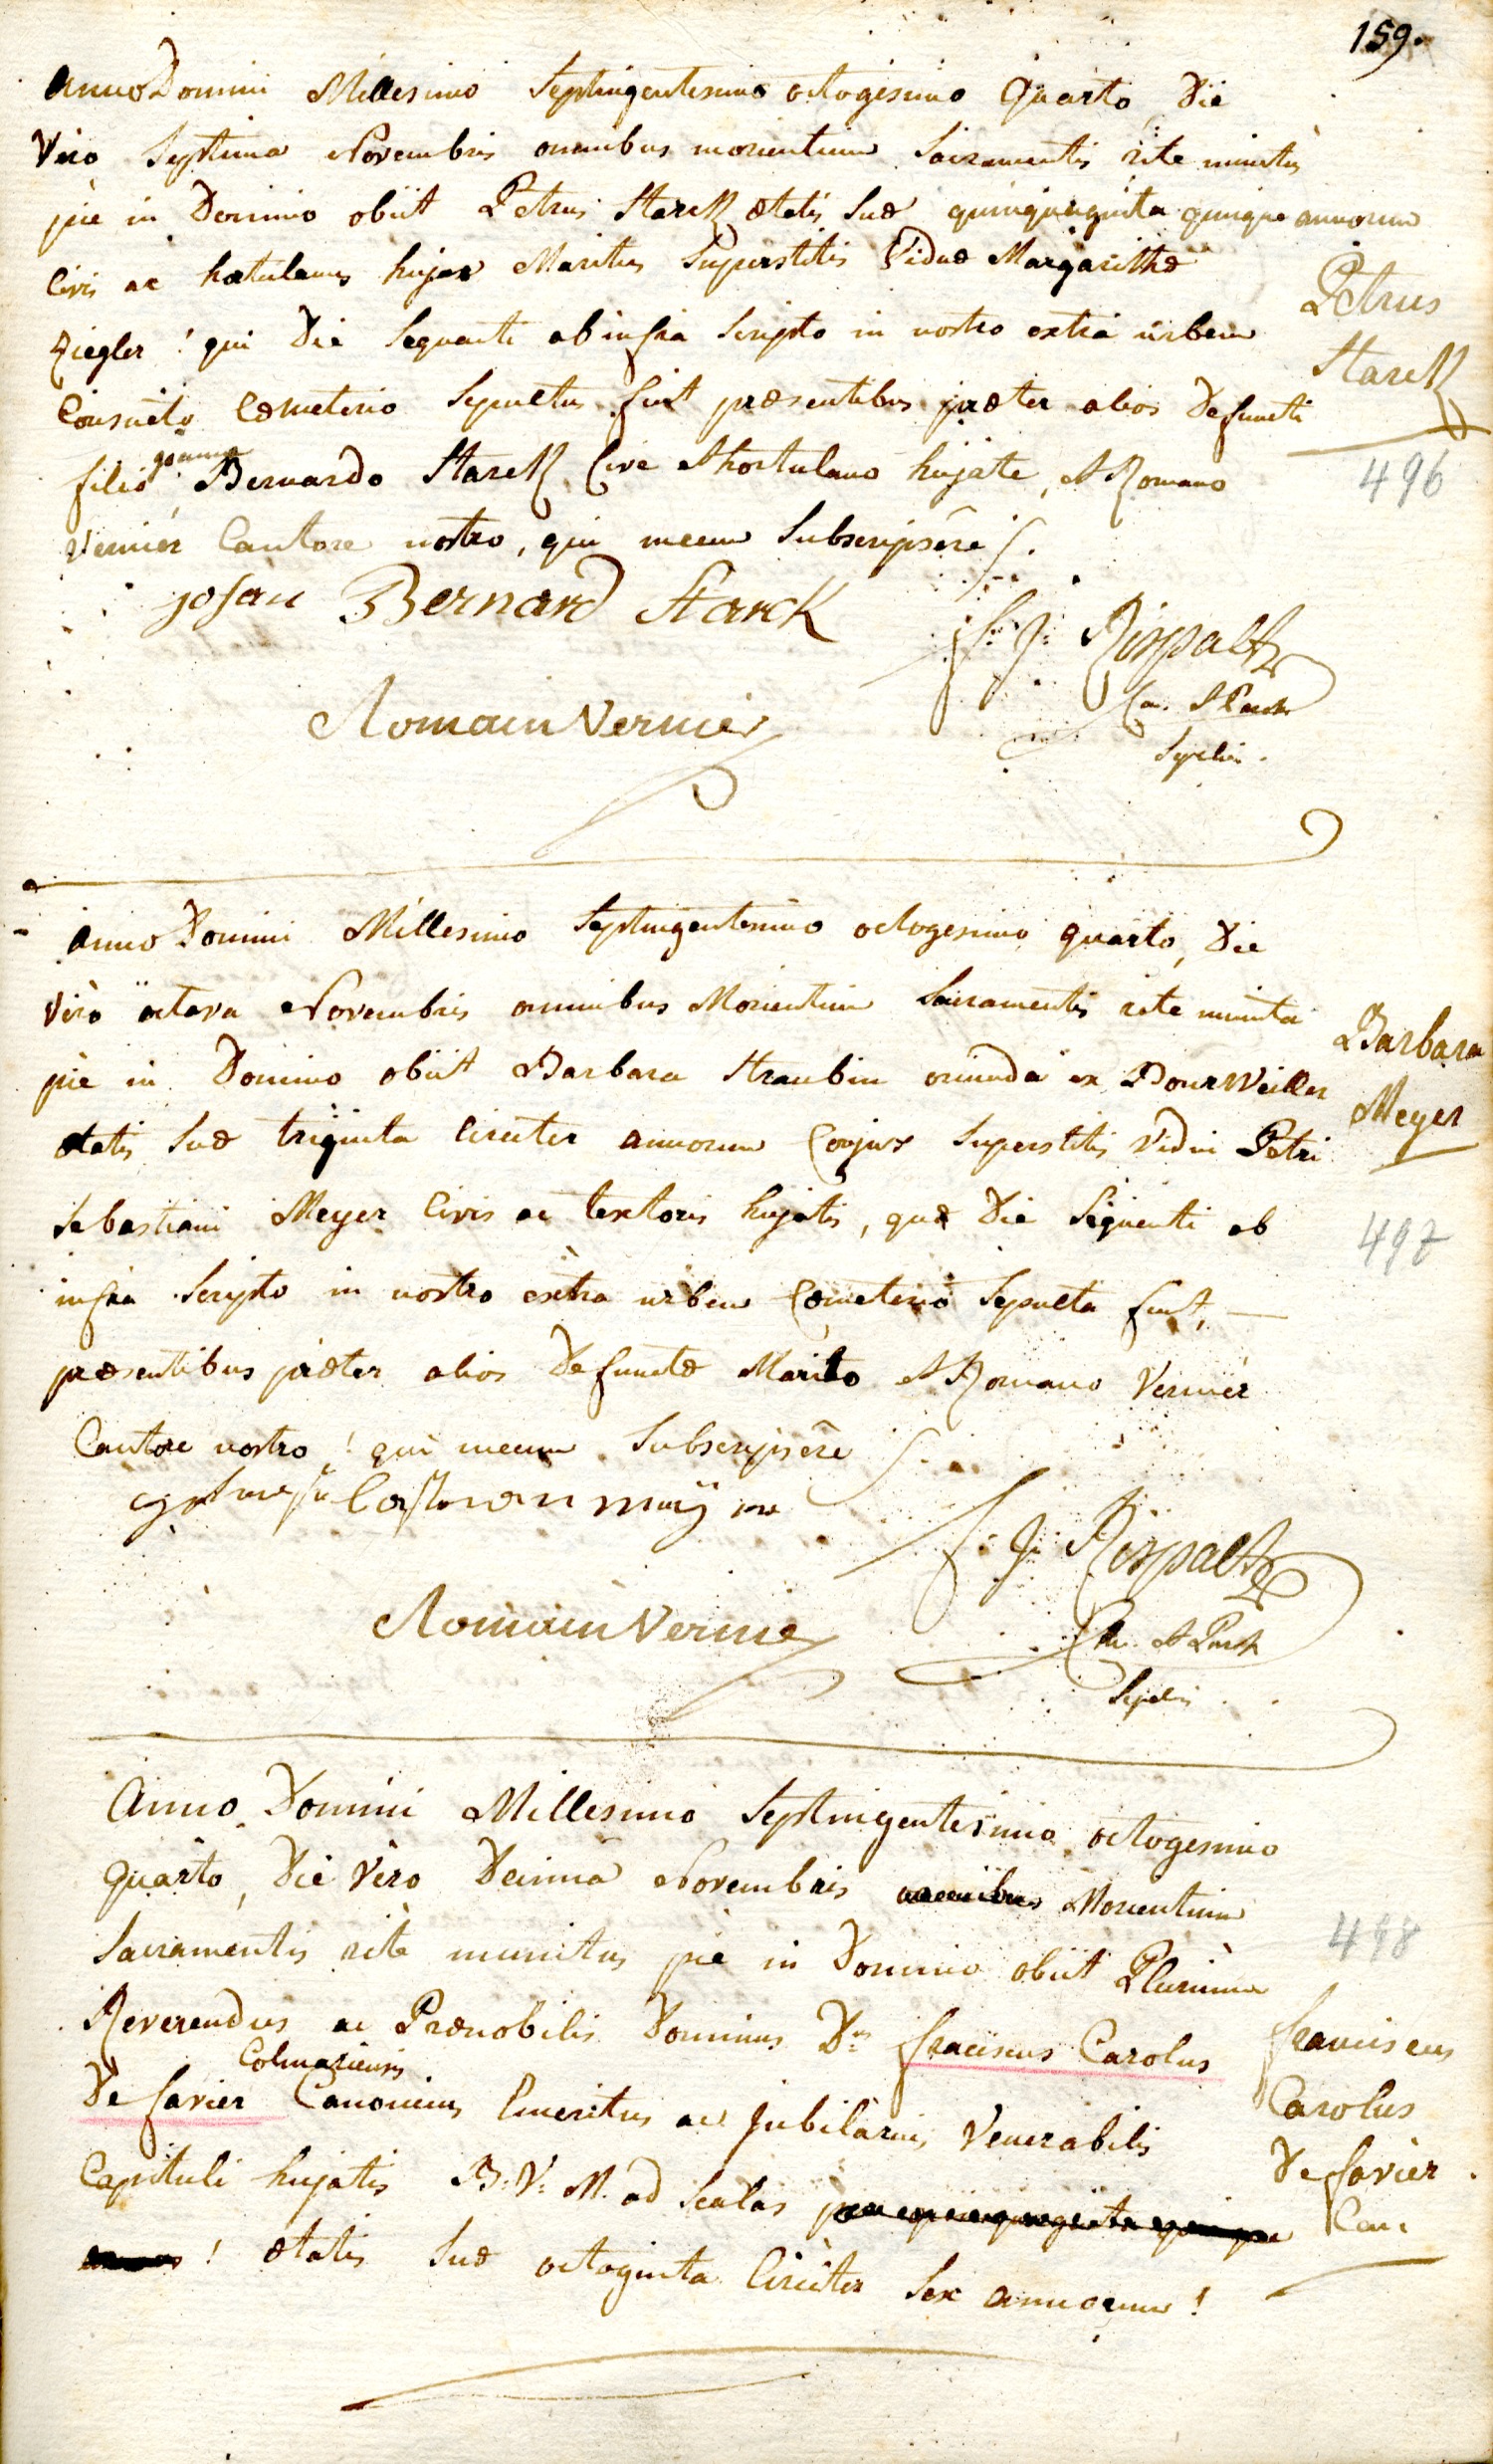 159.
Anno Domini Millesimo Septingentesimo octogesimo Quarto, Die
Vero Septima Novembris omnibus morientium Sacramentis rite munitus
pie in Domino obiit Petrus Starck ætatis suæ quinquaginta quinque annorum
Civis ac hortulanus hujas Maritus Superstitis Viduæ Margarithæ
Ziegler! qui Die Sequenti ab infra scripto in nostro extra urbem
Consueto Cœmeterio Sepultus fuit præsentibus præter alios Defuncti
filio Joanne Bernardo Starck Cive & hortulano hujate, & Romano
Vernier Cantore nostro, qui mecum Subscripsêre
Petrus
Starck
496
Josan Bernard Starck
F: J: Rispalt
Can. & Paroch
Romain Vernier
Sepelivi.
Anno Domini Millesimo Septingentesimo octogesimo quarto, Die
Verò octava Novembris omnibus Morientium Sacramentis rite munita
piè in Domino obiit Barbara Straubin oriunda ex BourWeiller
ætatis suæ triginta circiter annorum Conjux Superstitis Vidui Petri
Sebastiani Meyer Civis ac textoris hujatis, quæ Die Sequenti ab
infra Scripto in nostro extra urbem Cœmeterio Sepulta fuit, —
præsentibus præter alios Defunctæ Marito & Romano Vernier
Cantore nostro! qui mecum Subscripsêre
Barbara
Meyer
497
F: J: Rispalt
Romain Vernier
Can. & Paroch
Sepelivi
Anno Domini Millesimo Septingentesimo octogesimo
Quarto, Die Vero Decima Novembris omnibus Morientium
Sacramentis ritè munitus piè in Domino obiit Plurimum
Reverendus ac Prænobilis Dominus D:nus franciscus Carolus
De favier Colmariensis Canonicus Emeritus ac Jubilarius Venerabilis
Capituli hujatis B: V: M. ad Scalas per quinquaginta quinque
annos! ætatis suæ octoginta Circiter Sex annorum!
498
franciscus
Carolus
De favier
Can: